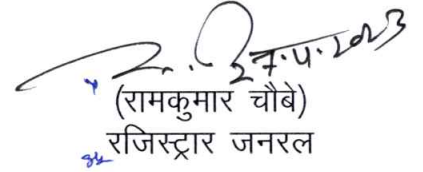 27.4.2023
(रामकुमार चौबे)
रजिस्ट्रार जनरल